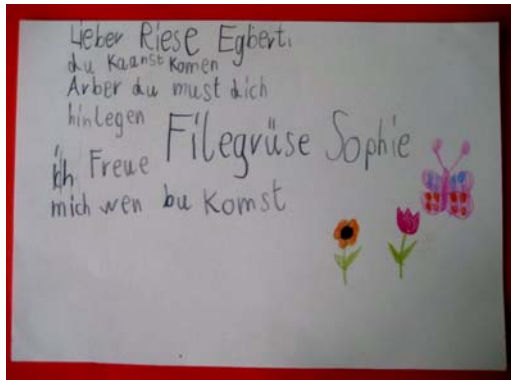 Lieber Riese Egbert,
du Kaanst Komen
Arber du must dich
hinlegen
Filegrüse Sophie
ich Freue
mich wen bu Komst